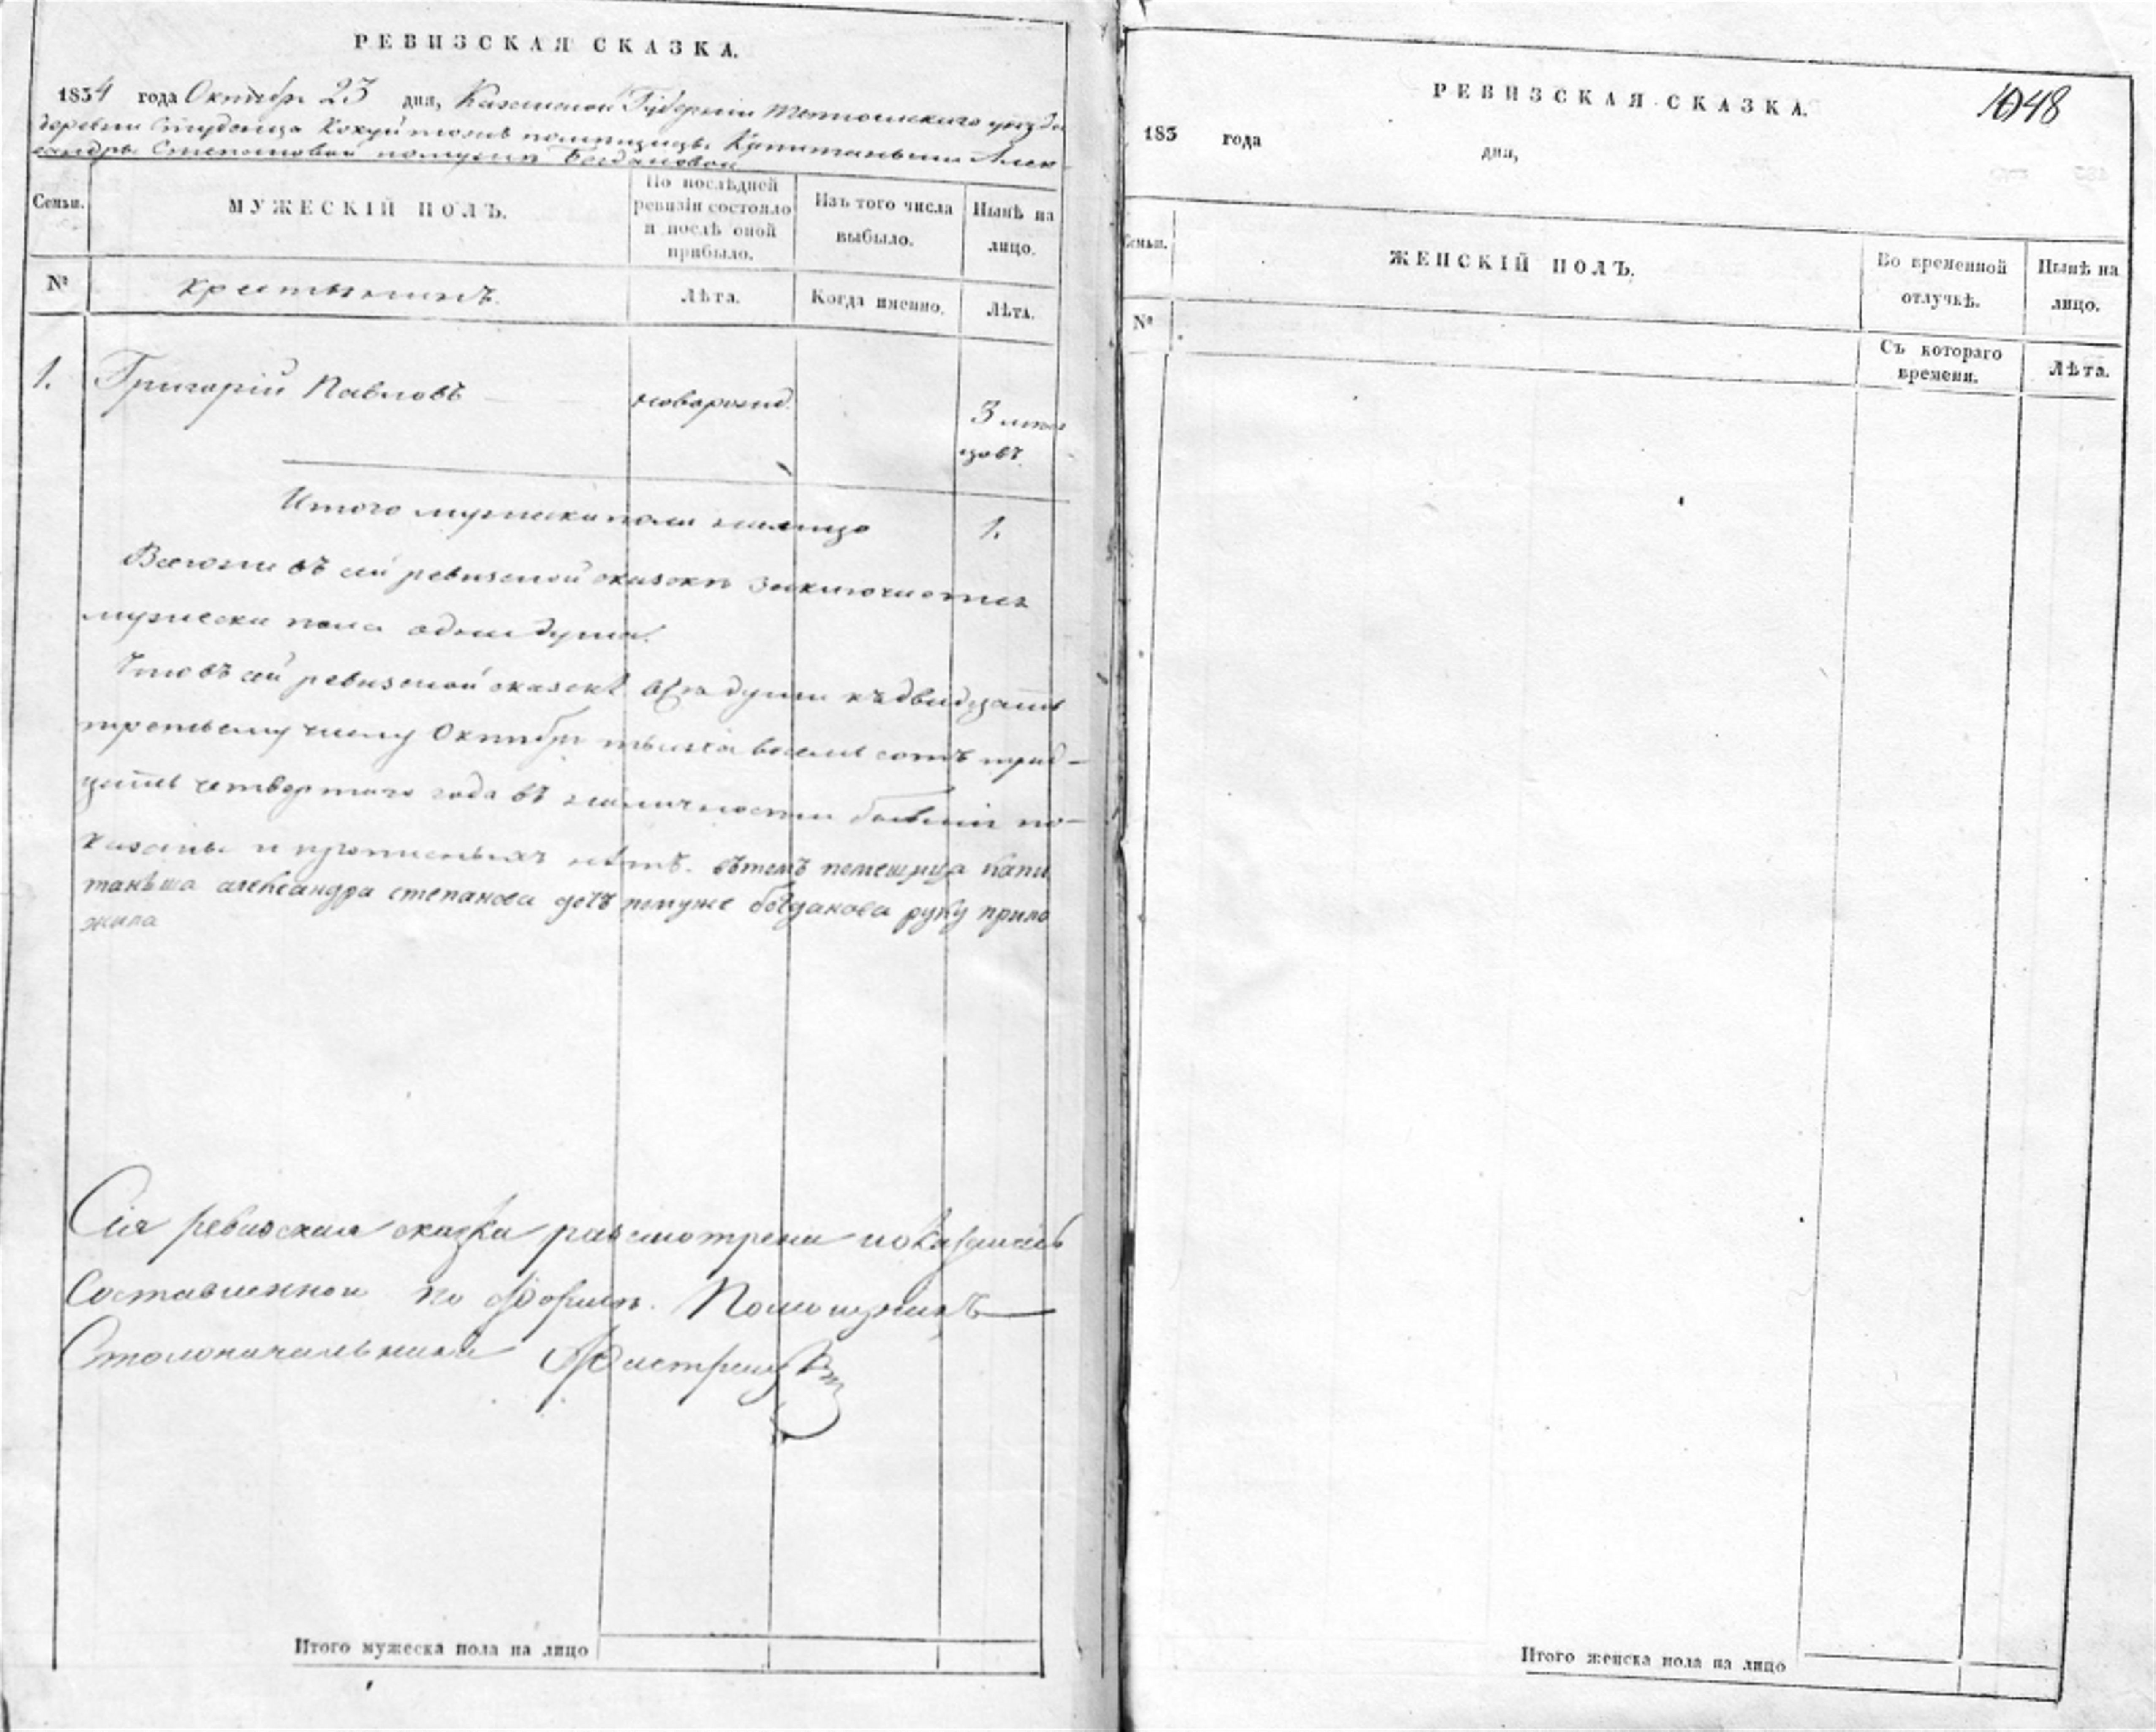 РЕВИЗСКАЯ СКАЗКА.
1834 года Октября 23 дня, Казанской Губернии Тетюшскаго уезда
деревни Студенца Кокуй тожъ помещицы Капитанши Алек
сандры Степановой помуже Богдановой
Семьи.
МУЖЕСКІЙ ПОЛЪ.
По послѣдней
ревизіи состояло
и послѣ оной
прибыло.
Изъ того числа
выбыло.
Нынѣ на
лицо.
№
крестьянинъ.
Лѣта.
Когда именно.
Лѣта.
1. Григорій Павловъ новорожд. 3 меся
цовъ.
Итого мужеска пола налицо 1.
Всего же въ сей ревизской сказке заключается
мужеска пола одна душа.
Что въ сей ревизской сказкѣ все души къ двадцать
третьему числу Октября тысяча восемь сотъ трид-
цать четвертаго года въ наличности бывшие по-
казаны и прописныхъ нѣтъ. вътомъ помещица капи
танъша александра степанова дочъ помуже богданова руку прило
жила
Сія ревизская сказка разсмотрена и оказалась
Составленной по Форме. Помощникъ
Столоначальника
Итого мужеска пола на лицо
РЕВИЗСКАЯ СКАЗКА.
1048
183 года дня,
Семьи.
ЖЕНСКІЙ ПОЛЪ.
Во временной
отлучкѣ.
Нынѣ на
лицо.
№
Съ котораго
времени.
Лѣта.
Итого женска пола на лицо